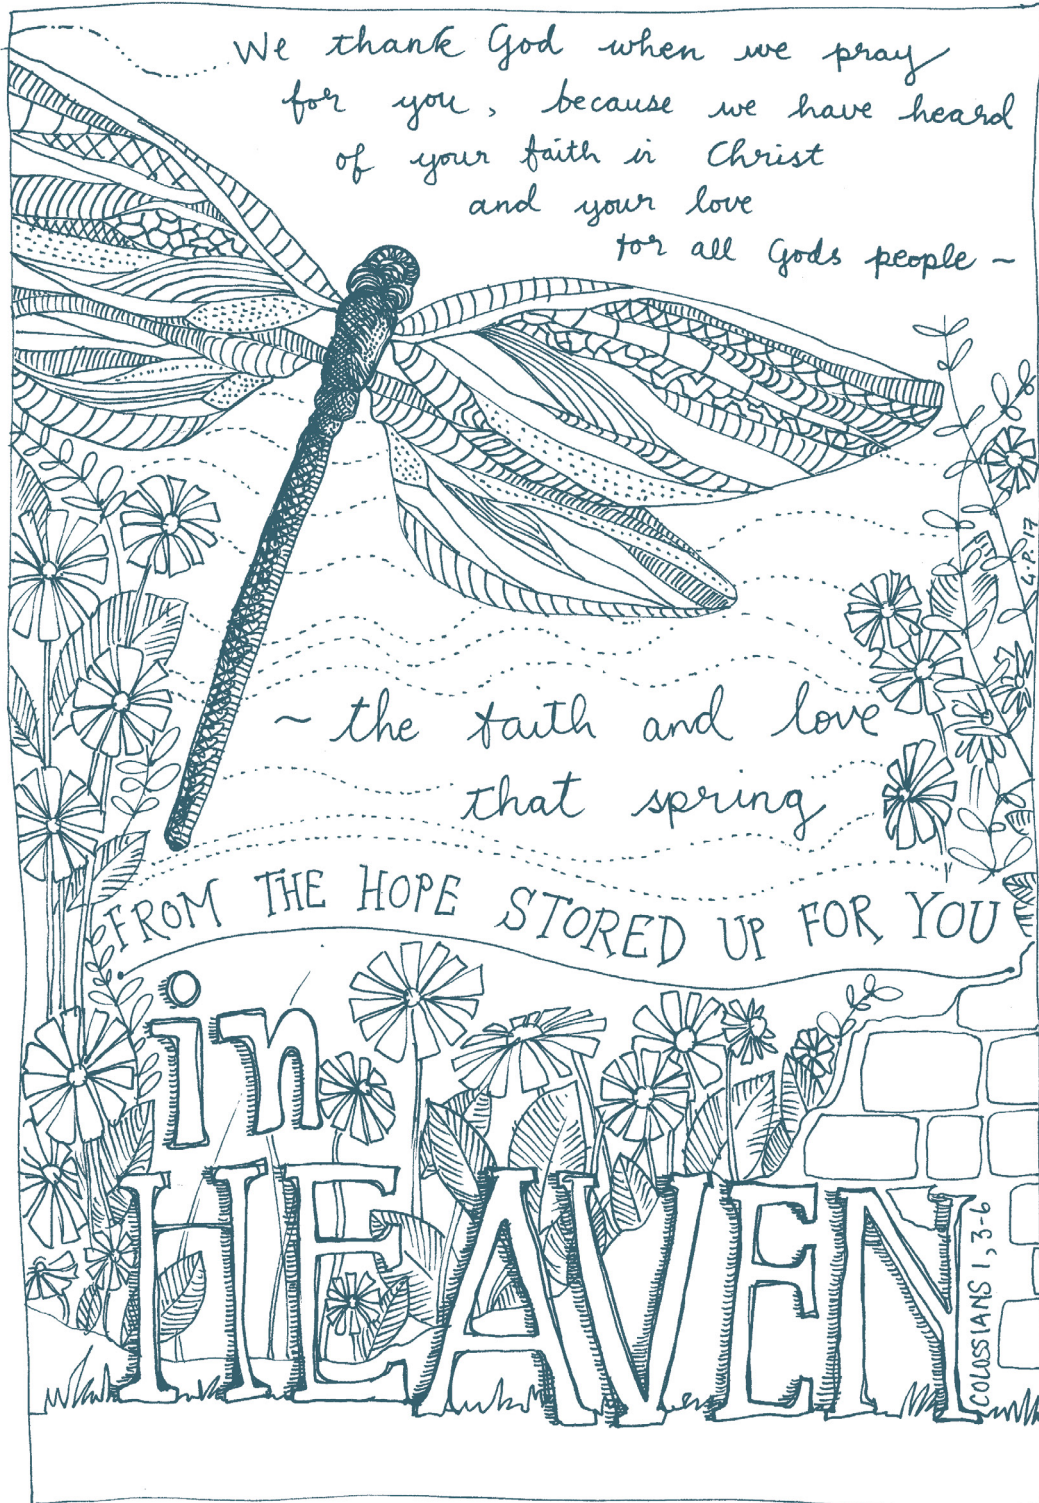 We thank God when we pray
for you, because we have heard
of your faith in Christ
and your love
for all Gods people ~
G.P.'17
~ the faith and love
that spring
FROM THE HOPE STORED UP FOR YOU
in
HEAVEN
COLOSSIANS 1, 3-6